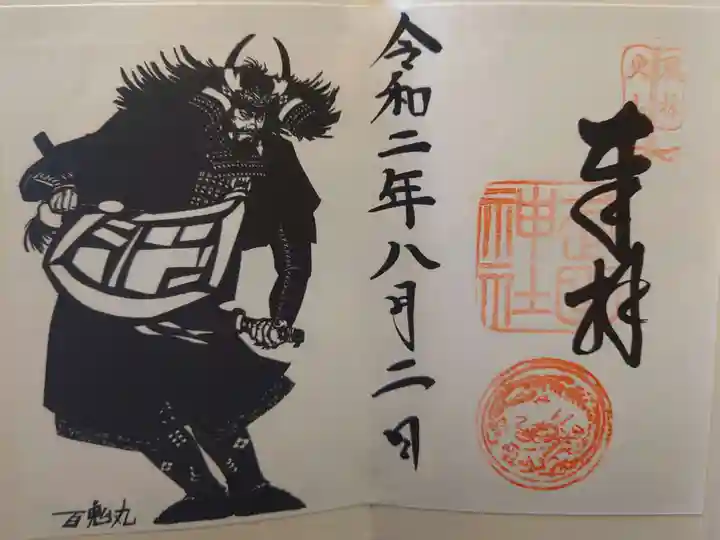 奉拝
神社
令和二年八月二日
百鬼丸